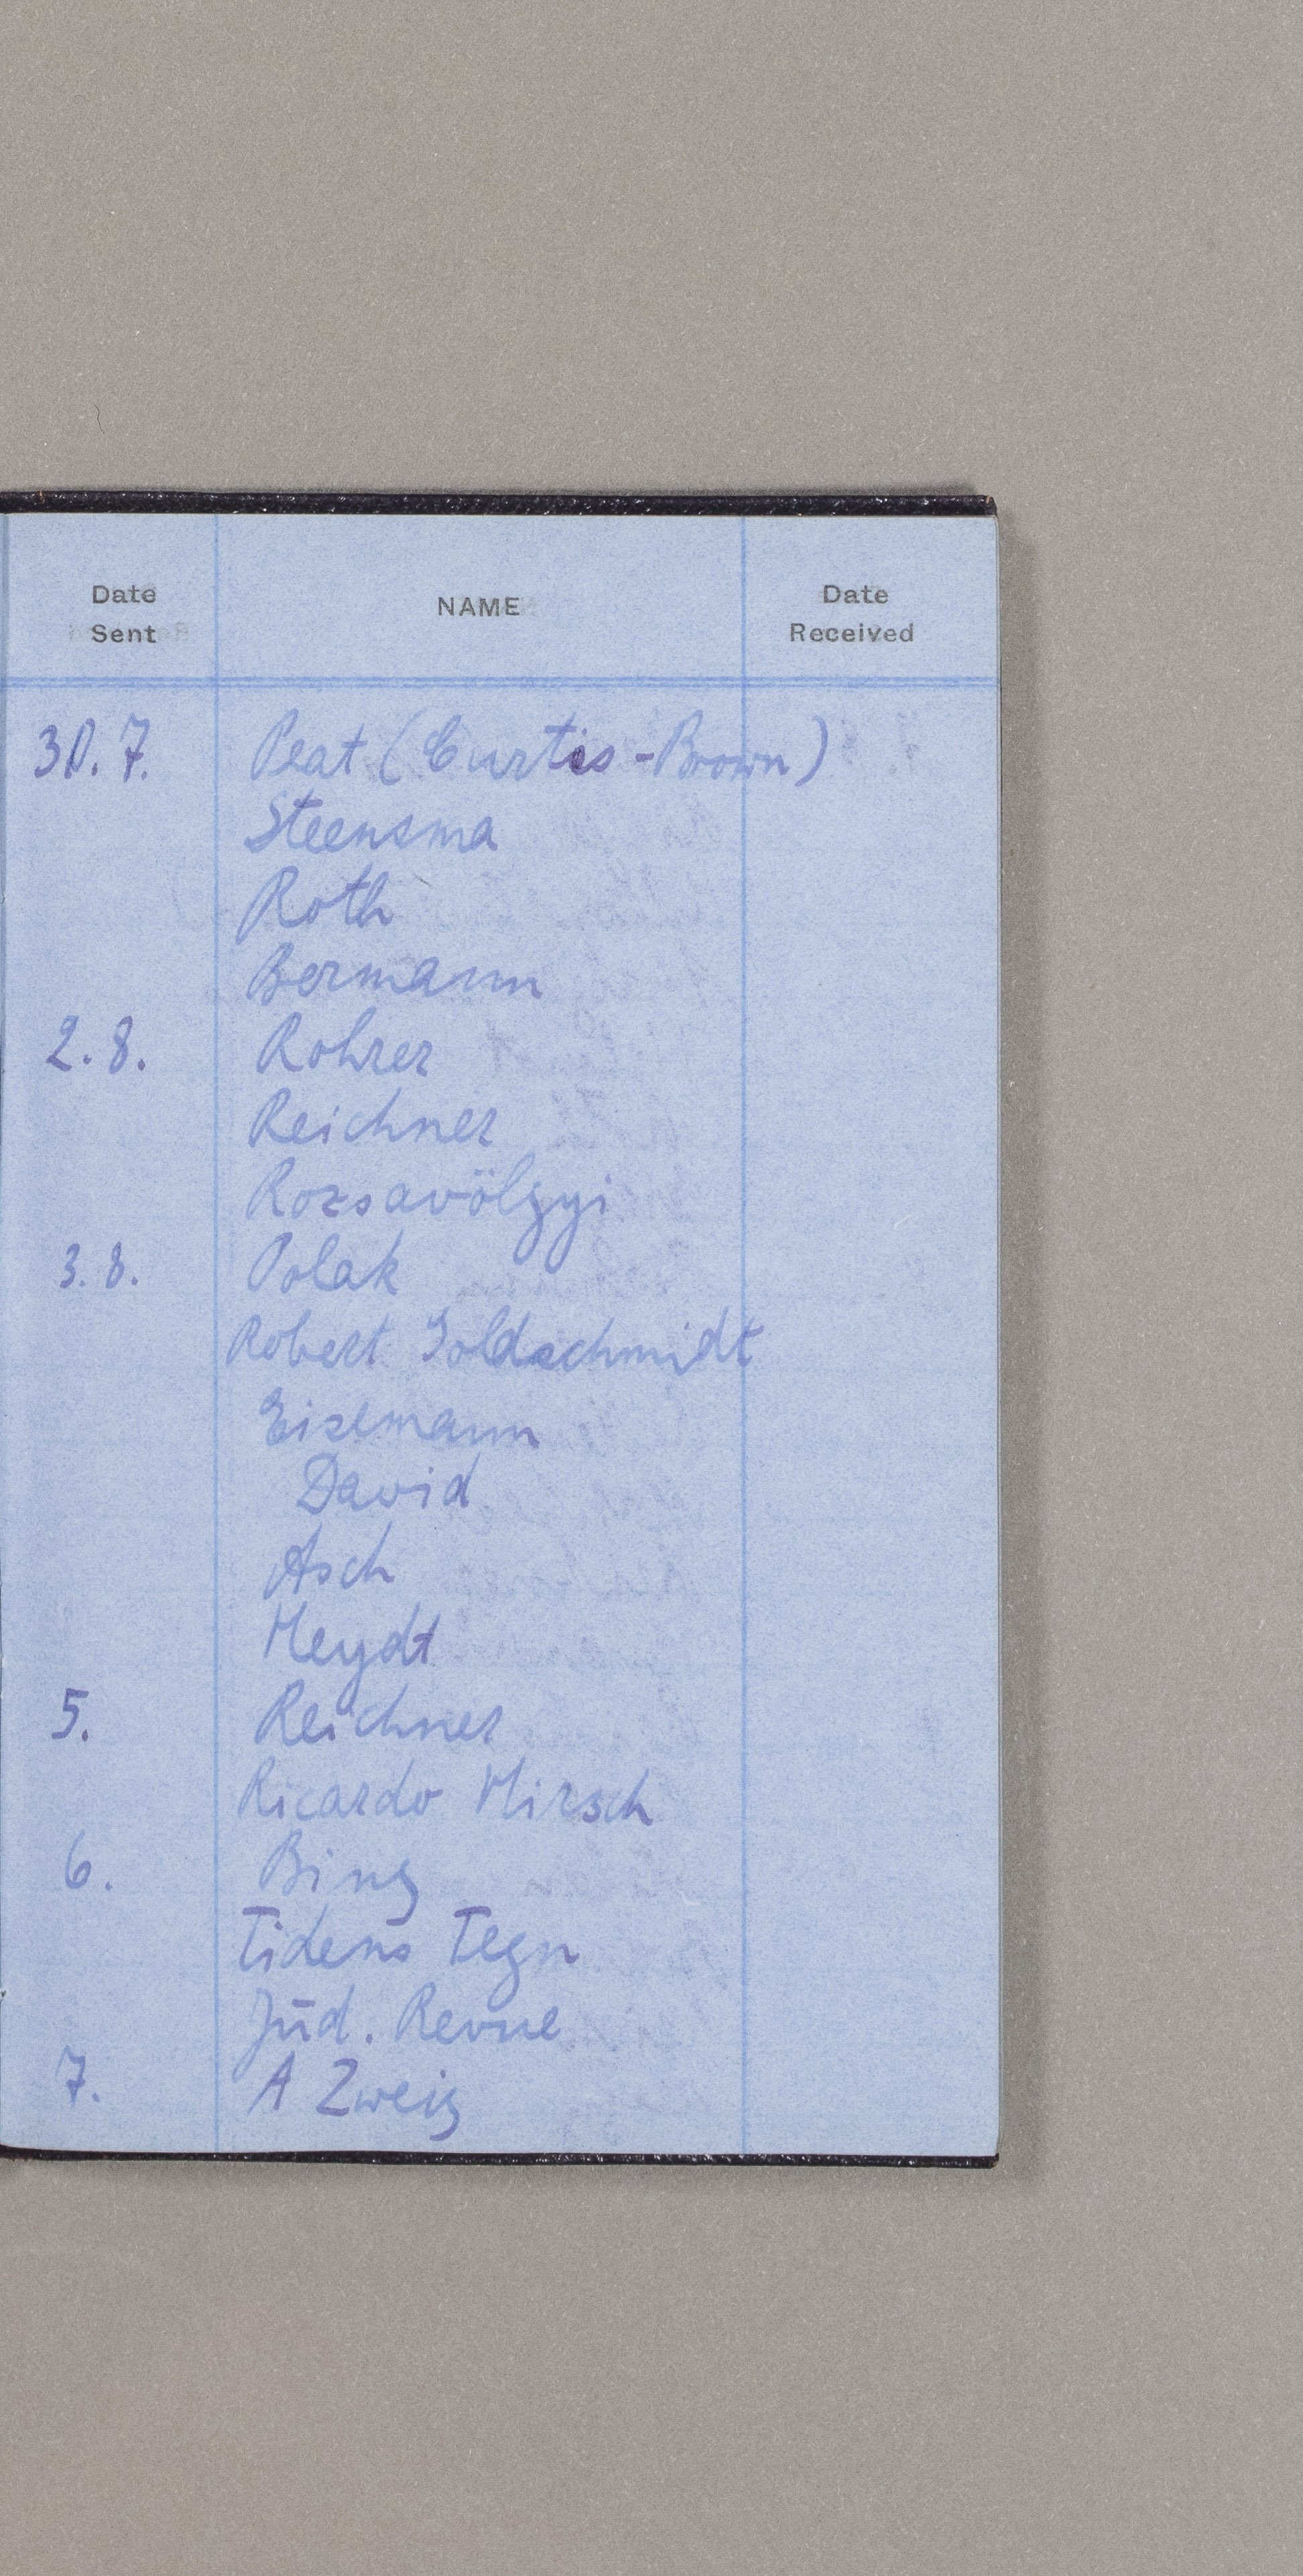 Date Sent NAME Date Received
30.7. Peat (Curtis-Brown)
Steensma
Roth
Bermann
2.8. Rohrer
Reichner
Rozsavölgyi
3.8. Polak
Robert Goldschmidt
Eisemann
David
Asch
Heydt
5. Reichner
Ricardo Hirsch
6. Bing
Tidens Tegn
Jüd. Revue
7. A Zweig